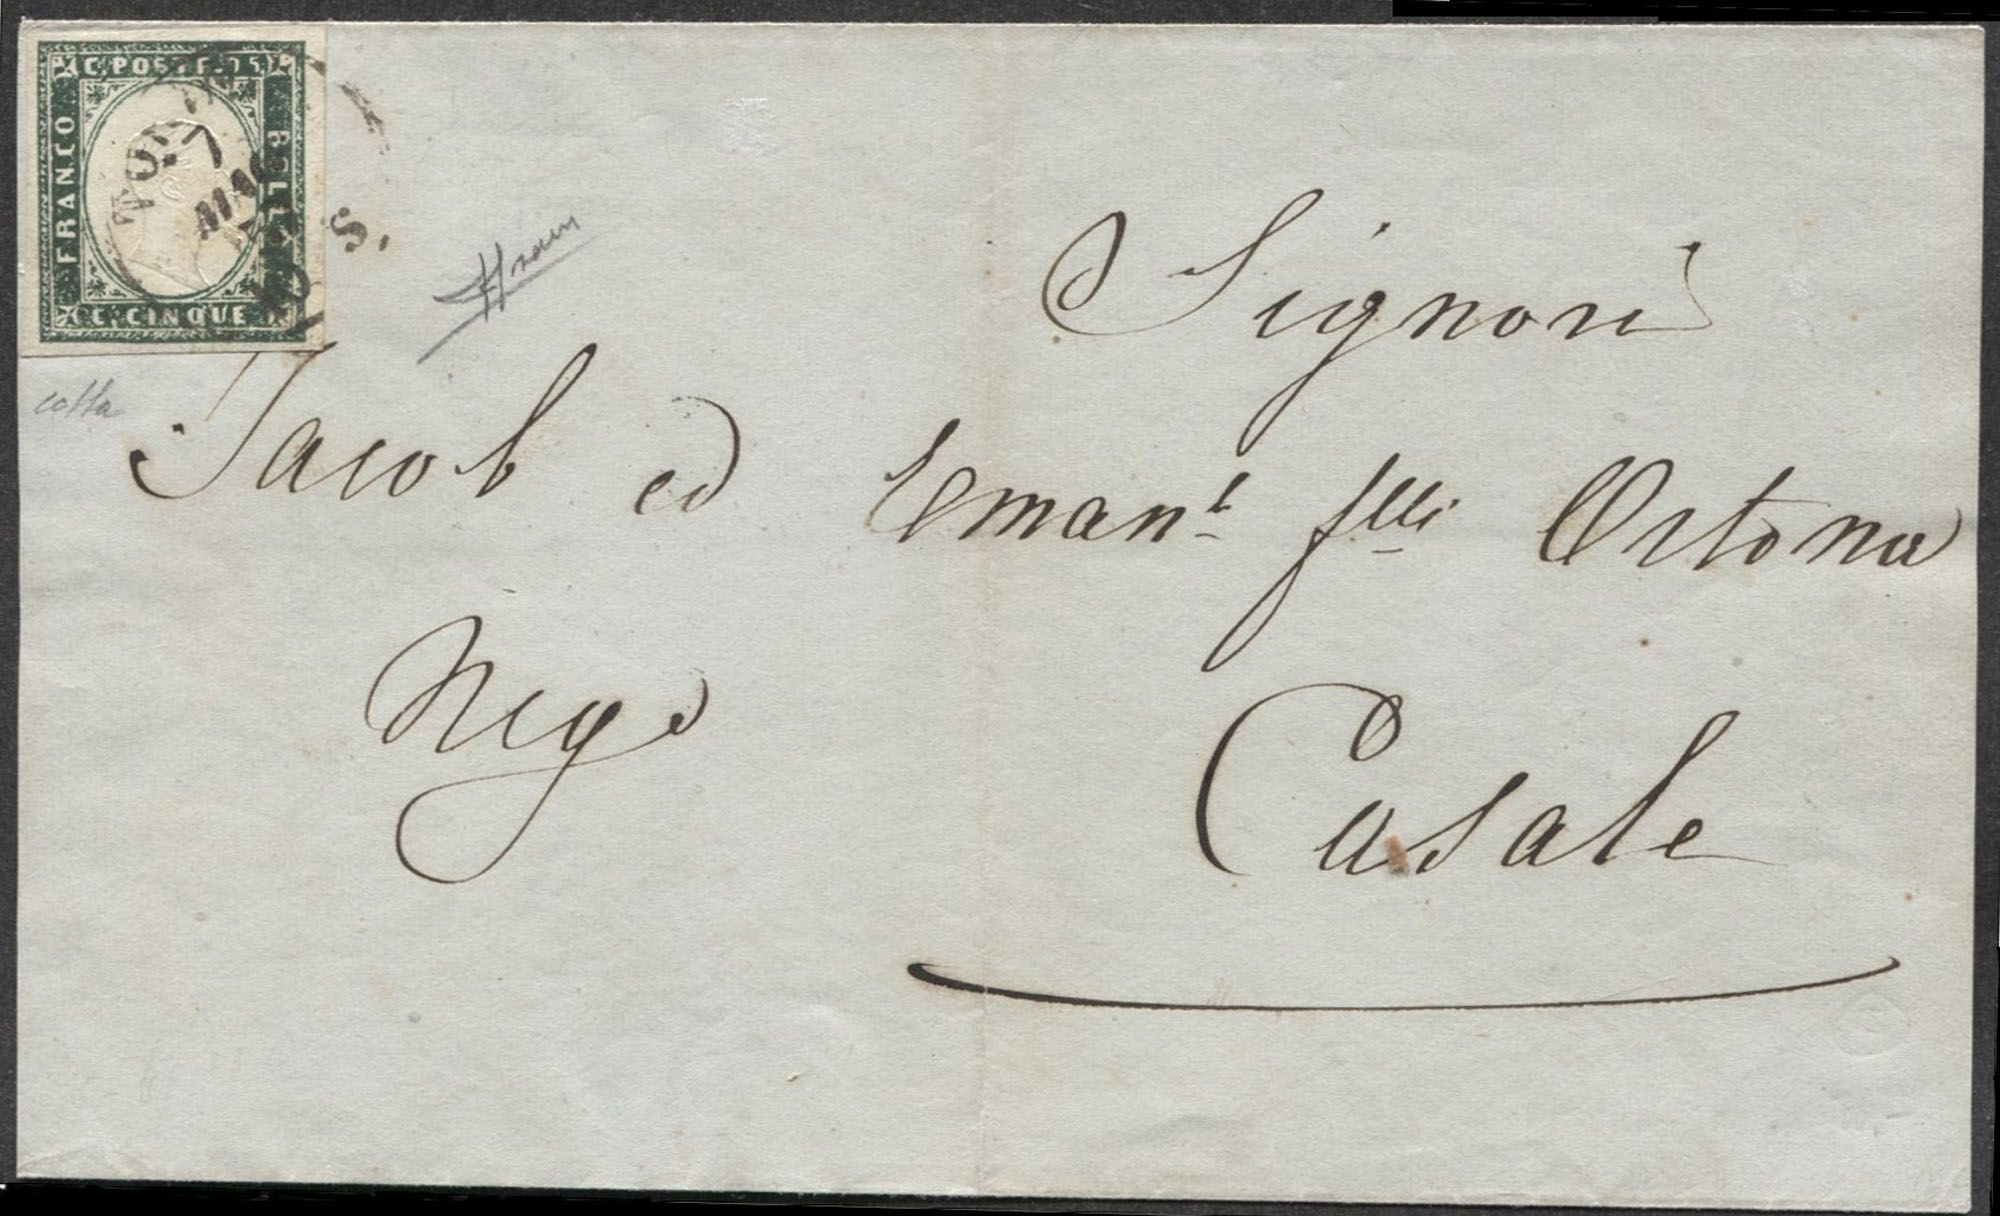 C. POSTE. 05
FRANCO
BOLLO
C. CINQUE
TO
7
MAG
S.
cotta
Signori
Jacob ed Eman.l f.lli Ortona
Neg.
Casale